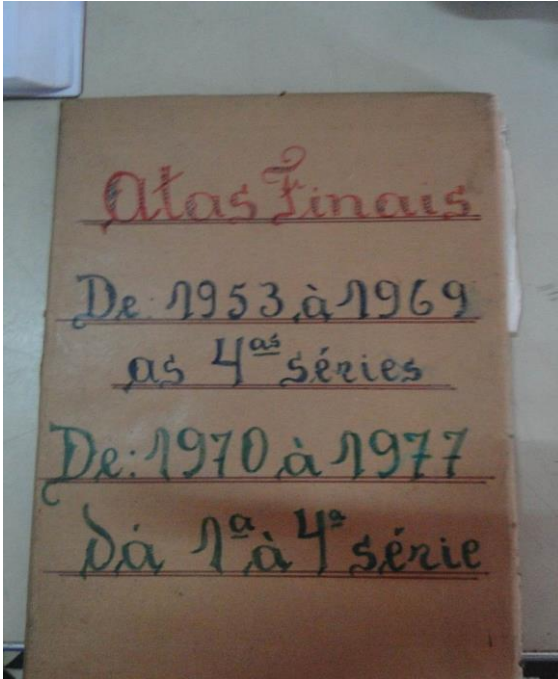 Atas Finais
De: 1953 à 1969
as 4ªˢ séries
De: 1970 à 1977
Dá 1ª à 4ª série